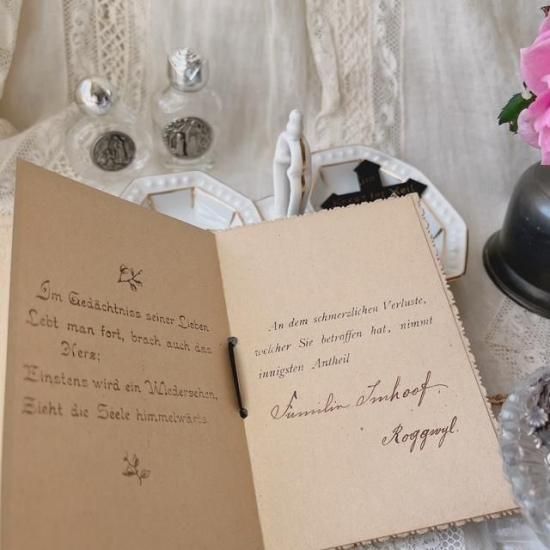 Im Gedächtniss seiner Lieben
Lebt man fort, brach auch das
Herz;
Einstens wird ein Wiedersehen,
Zieht die Seele himmelwärts.
An dem schmerzlichen Verluste,
welcher Sie betroffen hat, nimmt
innigsten Antheil
Familie Imhoof.
Roggwyl.